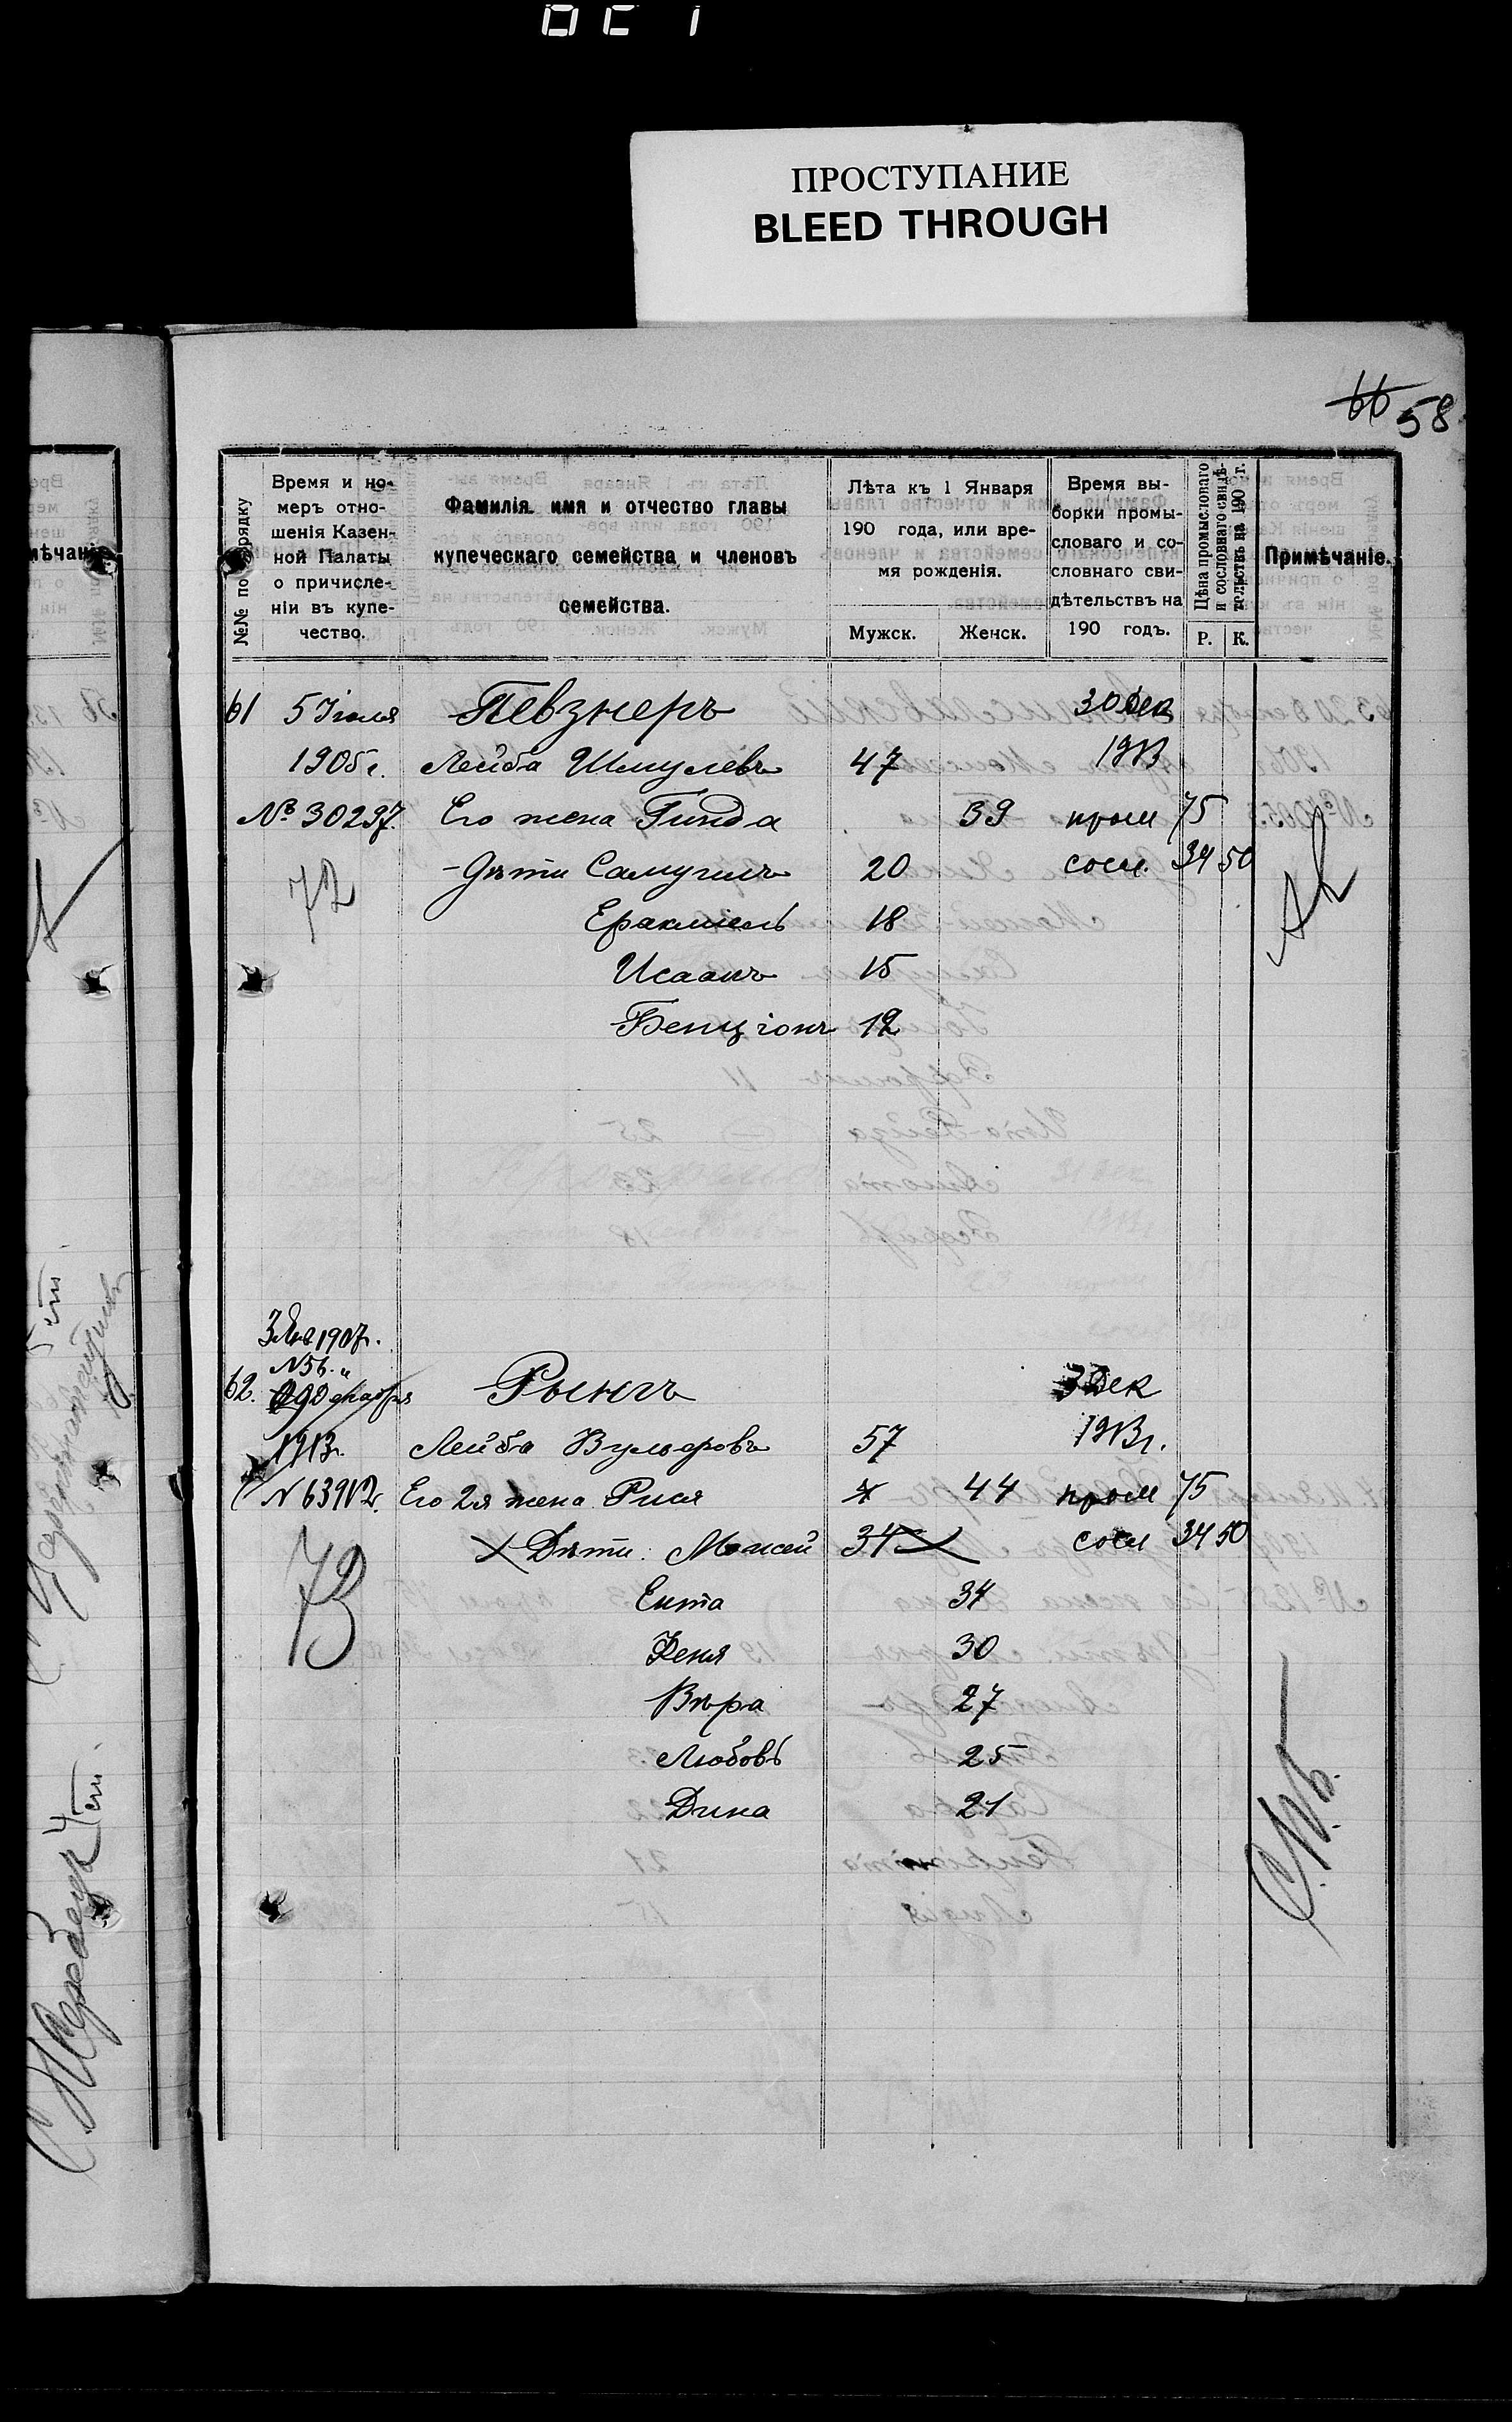 ПРОСТУПАНИЕ
BLEED THROUGH
66 58
№№ по порядку
Время и но-
меръ отно-
шенія Казен-
ной Палаты
о причисле-
ніи въ купе-
чество.
Фамилія, имя и отчество главы
купеческаго семейства и членовъ
семейства.
Лѣта къ 1 Января
190 года, или вре-
мя рожденія.
Мужск. Женск.
Время вы-
борки промы-
словаго и со-
словнаго сви-
дѣтельствъ на
190 годъ.
Цѣна промысловаго
и сословнаго свидѣ-
тельствъ на 190 г.
Р. К.
Примѣчаніе.
61 5 Іюля Певзнеръ 30 Дек
1905 г. Лейба Шмулевъ 47 1913
№ 30297. Его жена Гинда 39 пром 75
72 Дѣти Самуилъ 20 сосл. 34 50
Ерахміель 18
Исаакъ 15
Бенціонъ 12
3 Янв 1907 г.
N 56. "
62. Декабря Рынгъ Дек
1913. Лейба Вульфовъ 57 1913 г.
N 63912. Его 2я жена Рися 44 пром 75
73 Дѣти: Мойсей 34 сосл 34 50
Ента 34
Феня 30
Вѣра 27
Любовь 25
Дина 21